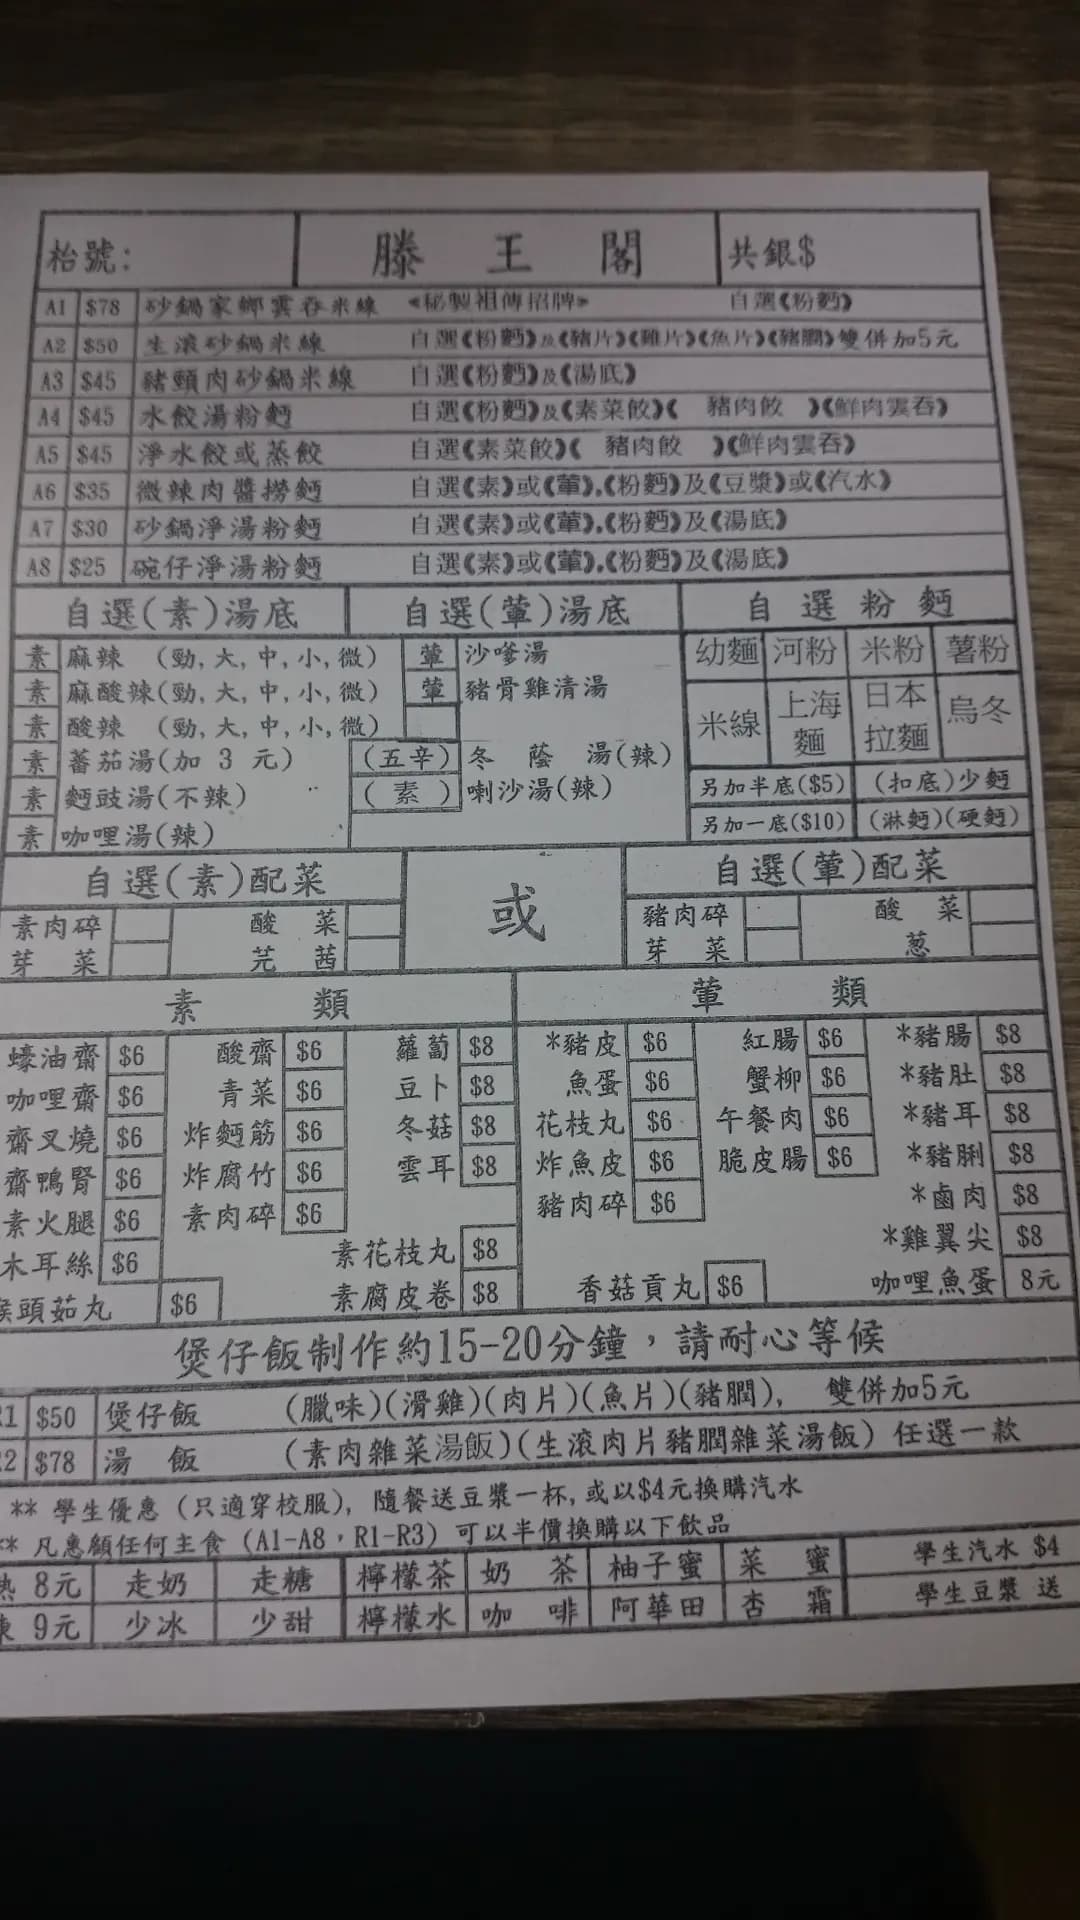 枱號: 滕王閣 共銀$
A1 $78 砂鍋家鄉雲吞米線 《秘製祖傳招牌》 自選《粉麵》
A2 $50 生滾砂鍋米線 自選《粉麵》及《豬片》《雞片》《魚片》《豬膶》雙併加5元
A3 $45 豬頸肉砂鍋米線 自選《粉麵》及《湯底》
A4 $45 水餃湯粉麵 自選《粉麵》及《素菜餃》《 豬肉餃 》《鮮肉雲吞》
A5 $45 淨水餃或蒸餃 自選《素菜餃》《 豬肉餃 》《鮮肉雲吞》
A6 $35 微辣肉醬撈麵 自選《素》或《葷》.《粉麵》及《豆漿》或《汽水》
A7 $30 砂鍋淨湯粉麵 自選《素》或《葷》.《粉麵》及《湯底》
A8 $25 碗仔淨湯粉麵 自選《素》或《葷》.《粉麵》及《湯底》
自選(素)湯底 自選(葷)湯底 自選粉麵
素 麻辣 (勁,大,中,小,微) 葷 沙嗲湯 幼麵 河粉 米粉 薯粉
素 麻酸辣(勁,大,中,小,微) 葷 豬骨雞清湯
素 酸辣 (勁,大,中,小,微) 米線 上海麵 日本拉麵 烏冬
素 蕃茄湯(加 3 元) (五辛) 冬蔭湯(辣)
素 麵豉湯(不辣) (素) 喇沙湯(辣) 另加半底($5) (扣底)少麵
素 咖哩湯(辣) 另加一底($10) (淋麵)(硬麵)
自選(素)配菜 或 自選(葷)配菜
素肉碎 酸菜 豬肉碎 酸菜
芽菜 芫茜 芽菜 葱
素類 葷類
蠔油齋 $6 酸齋 $6 蘿蔔 $8 *豬皮 $6 紅腸 $6 *豬腸 $8
咖哩齋 $6 青菜 $6 豆卜 $8 魚蛋 $6 蟹柳 $6 *豬肚 $8
齋叉燒 $6 炸麵筋 $6 冬菇 $8 花枝丸 $6 午餐肉 $6 *豬耳 $8
齋鴨腎 $6 炸腐竹 $6 雲耳 $8 炸魚皮 $6 脆皮腸 $6 *豬脷 $8
素火腿 $6 素肉碎 $6 豬肉碎 $6 *鹵肉 $8
木耳絲 $6 素花枝丸 $8 *雞翼尖 $8
猴頭茹丸 $6 素腐皮卷 $8 香菇貢丸 $6 咖哩魚蛋 8元
煲仔飯制作約15-20分鐘，請耐心等候
R1 $50 煲仔飯 (臘味)(滑雞)(肉片)(魚片)(豬膶), 雙併加5元
R2 $78 湯飯 (素肉雜菜湯飯)(生滾肉片豬膶雜菜湯飯) 任選一款
** 學生優惠 (只適穿校服), 隨餐送豆漿一杯,或以$4元換購汽水
** 凡惠顧任何主食 (A1-A8，R1-R3) 可以半價換購以下飲品
熱 8元 走奶 走糖 檸檬茶 奶茶 柚子蜜 菜蜜 學生汽水 $4
凍 9元 少冰 少甜 檸檬水 咖啡 阿華田 杏霜 學生豆漿 送